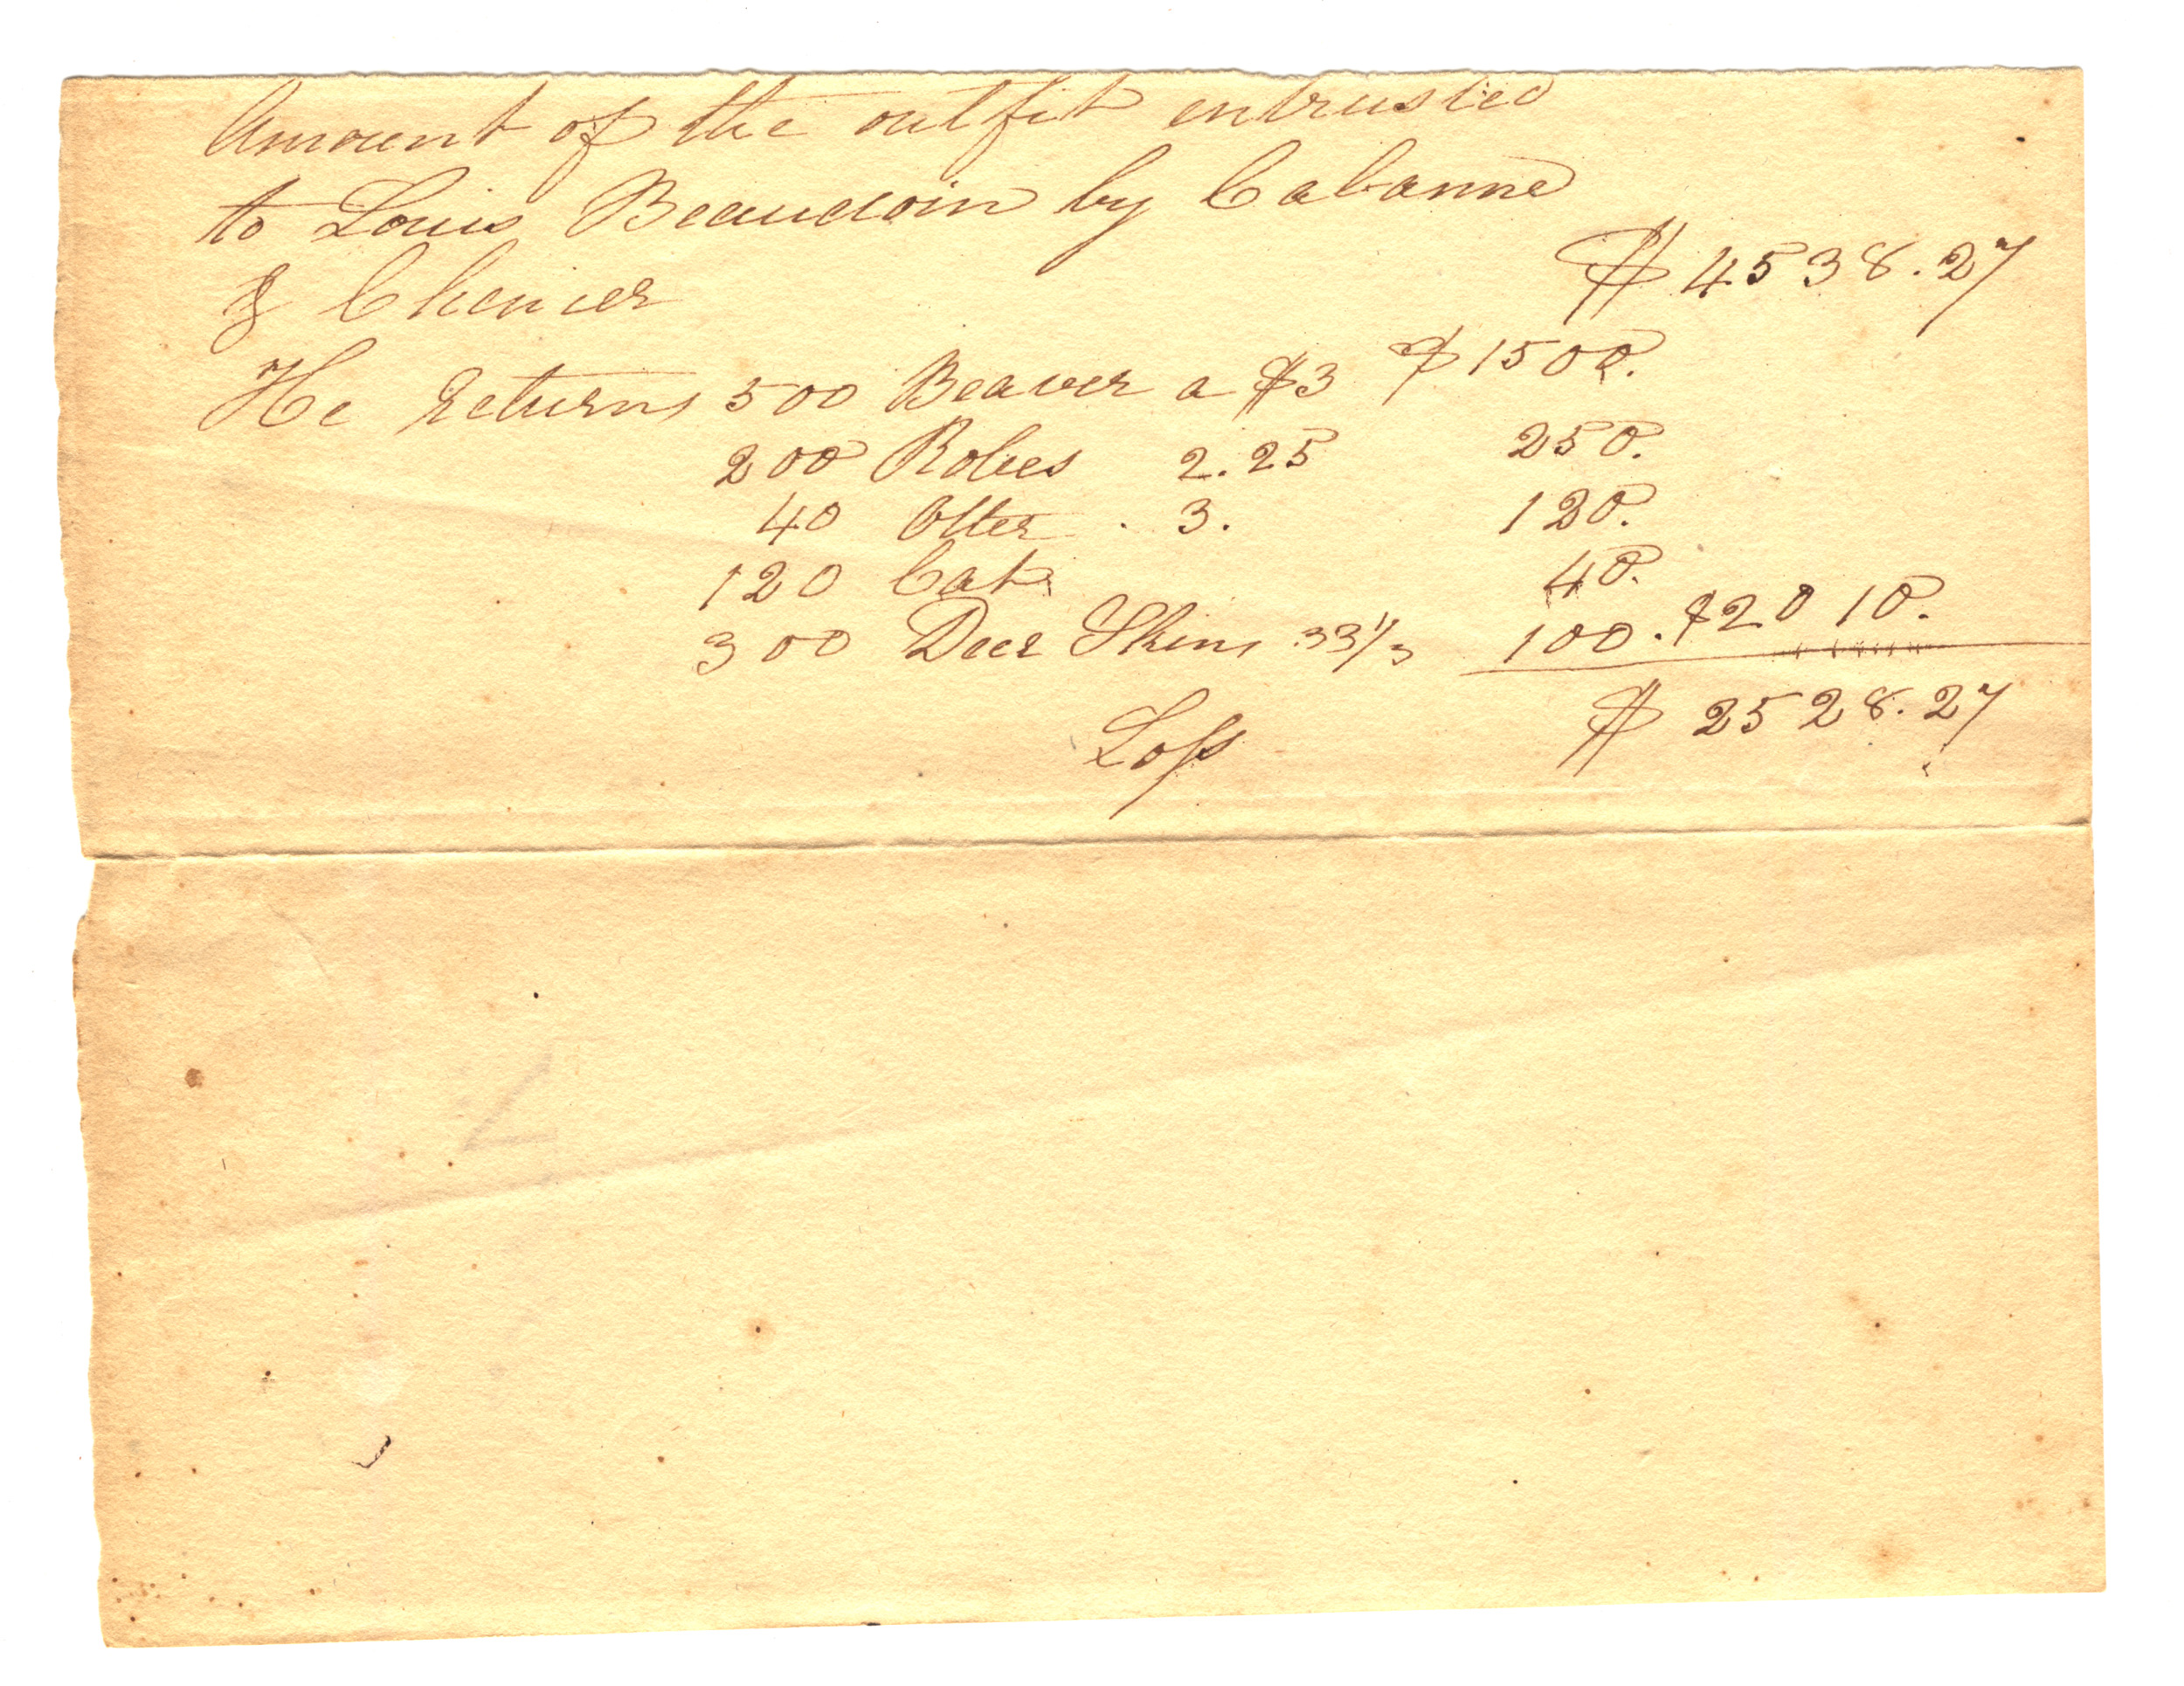 Amount of the outfit entrusted
to Louis Beaudoin by Cabanné
& Chenier $ 4538.27
He returns 500 Beaver a $3 $ 1500.
200 Robes 2.25 250.
40 Otter . 3. 120.
120 Cat 40.
300 Deer Skins 33 1/3 100. $2010.
Loss $ 2528.27